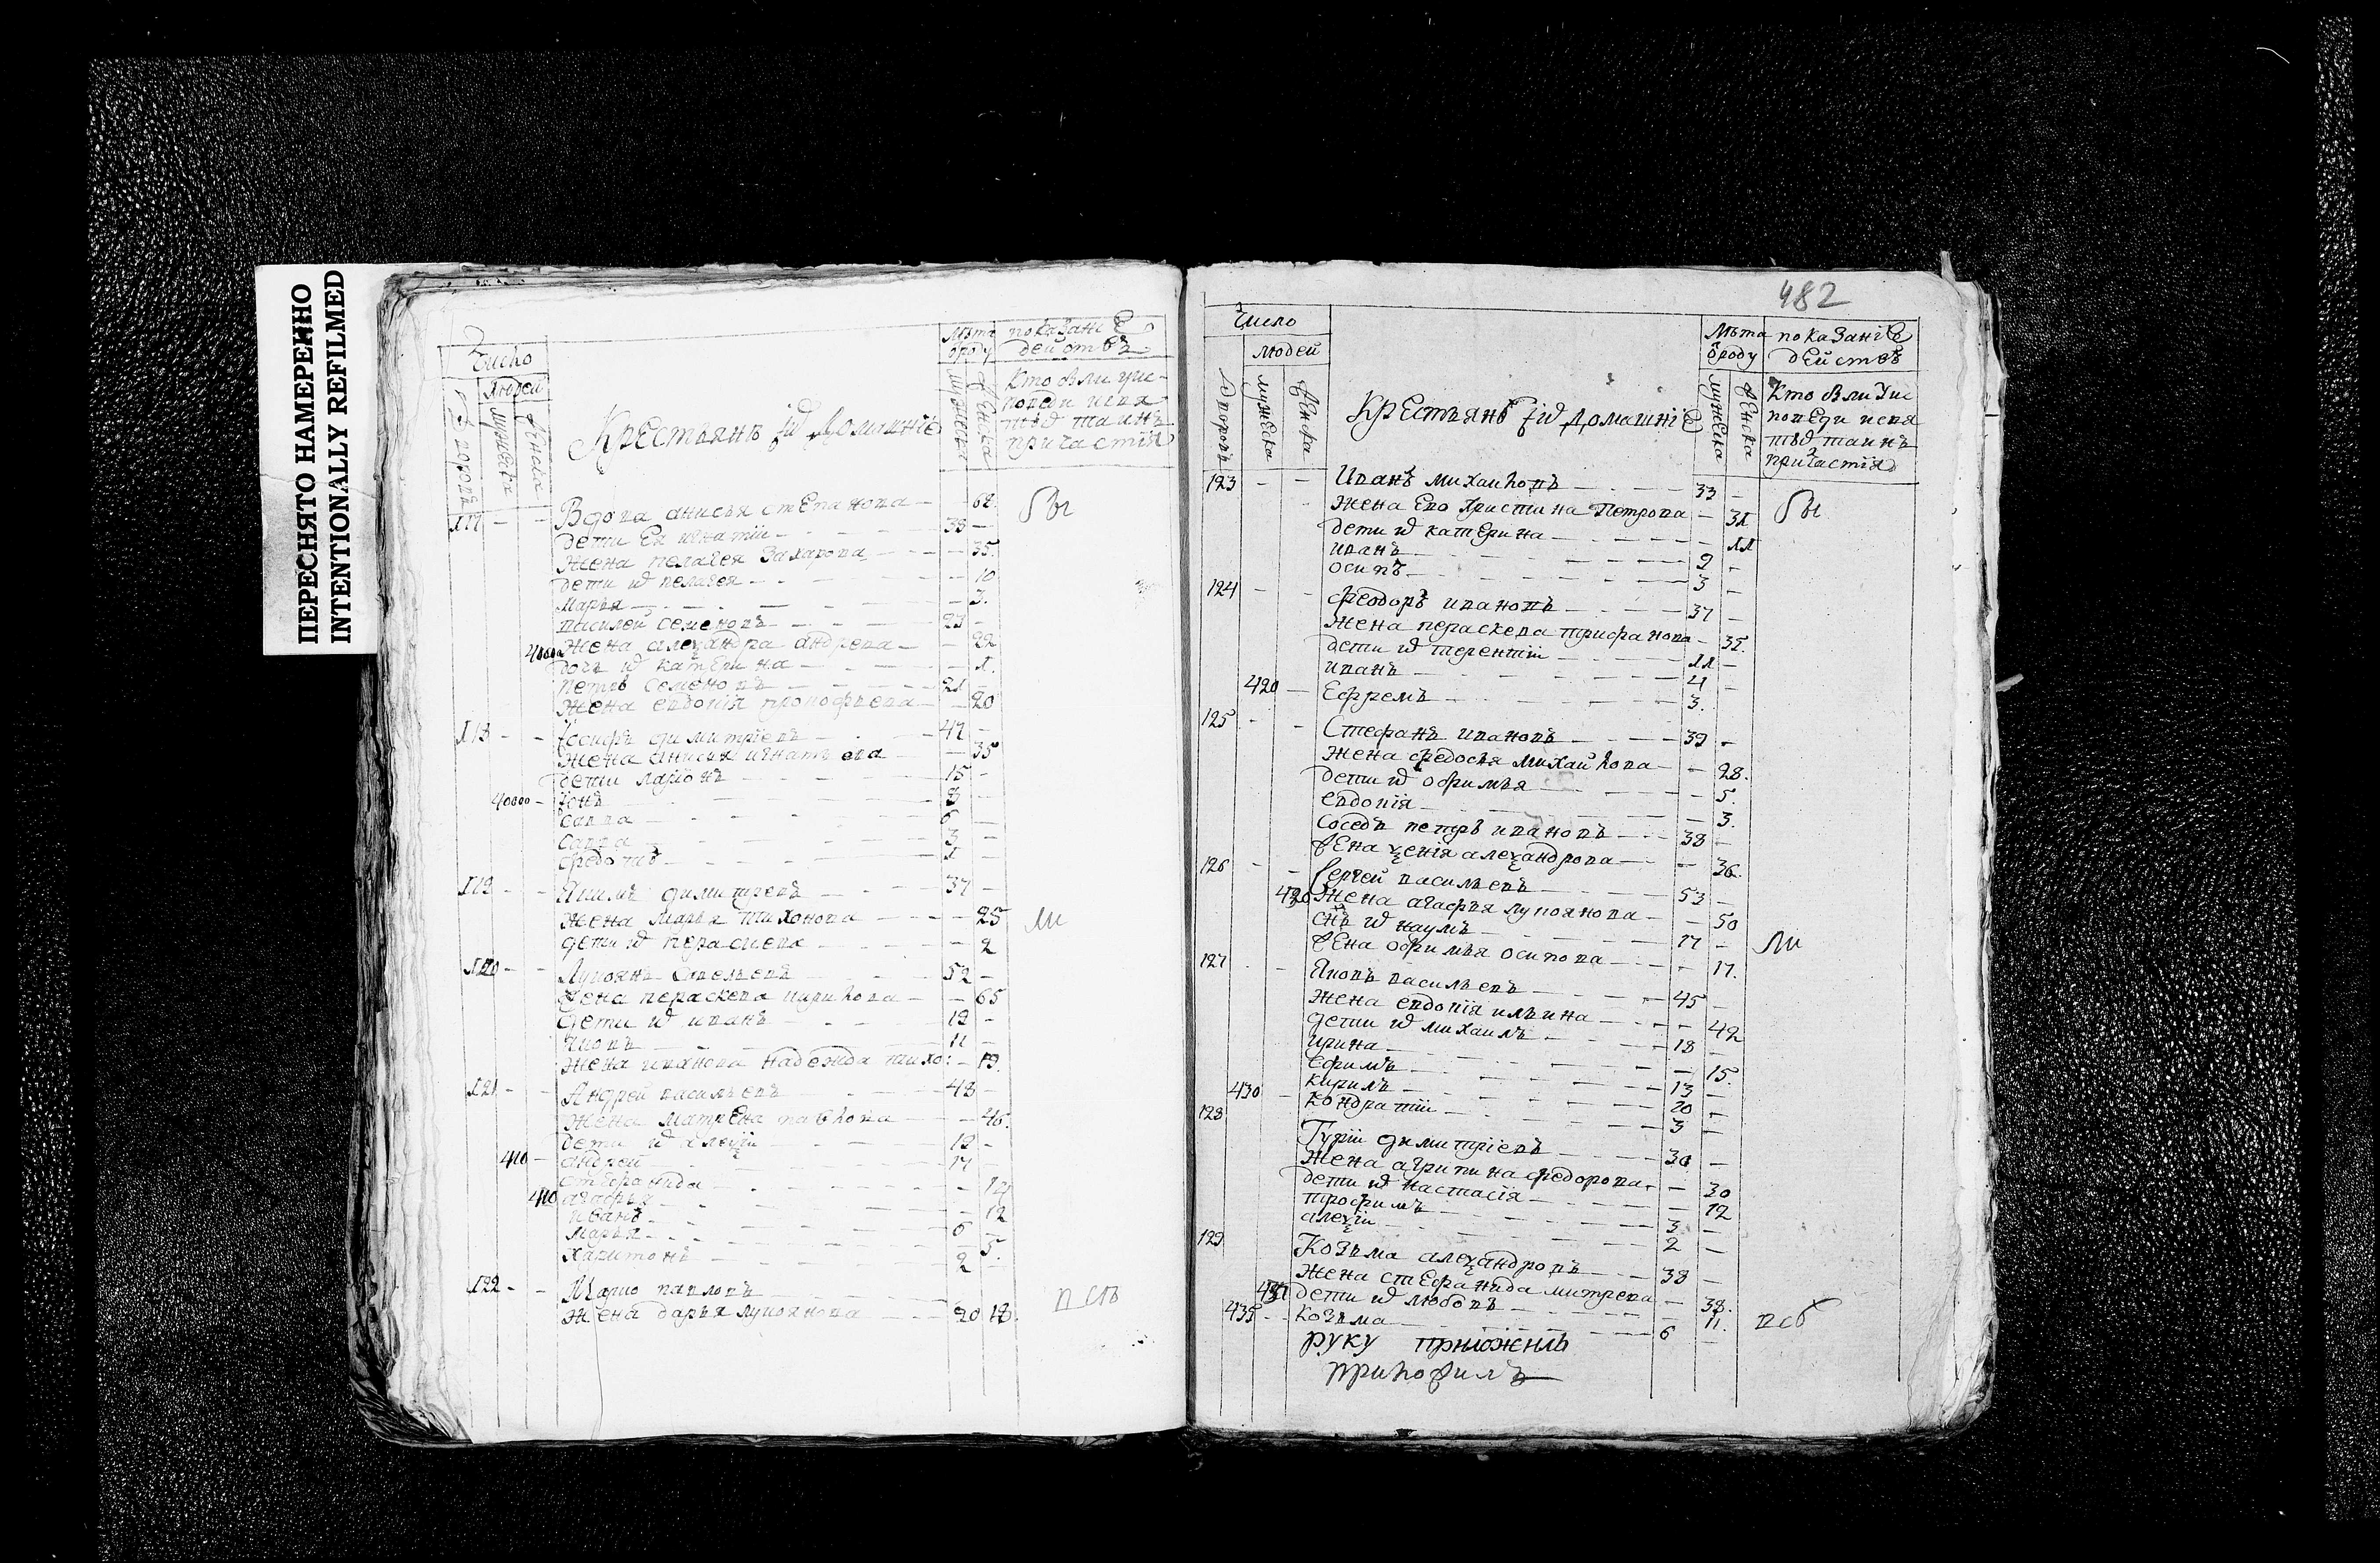 ПЕРЕСНЯТО НАМЕРЕННО
INTENTIONALLY REFILMED
Число
людей
дворовъ
мужеска
женска
Крестьянѣ и домашніе
Лѣта
ѿ роду
мужеска
женска
показаніе
действъ
Кто былъ у ис-
поведи и свя
тыхъ таинъ
причастия
117 - - Вдова анисья степанова - - 62
дети Ея игнатіи - 38 -
жена пелагея Захарова - - 35.
дети их пелагея - - 10
Марья - - 3.
василей семеновъ - 23 -
жена алеѯандра андрева - - 22
400 дочь их катерина - - 1.
петръ семеновъ - 21 -
жена евдокія прокофьева - 20
118 - - Іосифъ димитріевъ - 47 -
жена анисья игнатьева - 35
дети ларионъ - 15 -
400 - 8 -
савва - 6 -
савва - 3 -
федотъ - 1 -
119 - - Якимъ димитревъ - 37 -
жена марья тихонова - - 25
дети их пераскева - - 2
120 - - Лукоянъ савельевъ - 52 -
жена пераскева кирилова - - 65
дети их иванъ - 19 -
яковъ - 11 -
жена иванова надежда тихо: - 19.
121 - - Андрей васильевъ - 48 -
жена матрена павлова - - 46.
дети их алеѯіи - 19 -
410 - андрей - 17 -
стефанида - - 14
410 агафья - - 12
иванъ - 6 -
Марья - - 5.
харитонъ - 2
122 - - Марко павловъ - 20
жена дарья лукоянова - 18.
бы
ли
всѣ
482
Число
людей
дворовъ
мужеска
женска
Крестьянѣ и домашніе
Лѣта
ѿ роду
мужеска
женска
показаніе
действъ
Кто былъ у ис
поведи и свя
тыхъ таинъ
причастия
123 - - Иванъ михаиловъ - 33 -
жена Его христина Петрова - 31
дети их катерина - - 11
иванъ - 9 -
осипъ - 3 -
124 - - Феодоръ ивановъ - 37 -
жена пераскева трифанова - 35.
дети их терентіи - 11 -
иванъ - 4 -
420 - Ефремъ - 3. -
125 - - Стефанъ ивановъ - 39 -
жена федосья михайлова - - 28.
дети их офимья - - 5.
евдокія - - 3.
Соседъ петръ ивановъ - 38 -
жена ѯенія алеѯандрова - - 36.
126 - - Сергей васильевъ - 53 -
420 жена агафья лукоянова - - 50
снъ их наумъ - 17 -
жена офимья осипова - - 17.
127 - - Яковъ васильевъ - 45 -
жена евдокія ильина - - 42
дети их михаилъ - 18 -
ирина - - 15.
ефимъ - 13 -
кирилъ - 10 -
430 - кондратіи - 3 -
128 Гуріи димитріевъ - 30 -
жена агрипина федорова - - 30
дети их настасія - - 12
трофимъ - 3 -
алеѯіи - 2 -
129 Козьма алеѯандровъ - 38 -
жена стефанида митрева - 38.
дети их любовь - - 11.
435 - - козьма - 6 -
руку приложилъ
бы
ли
всѣ